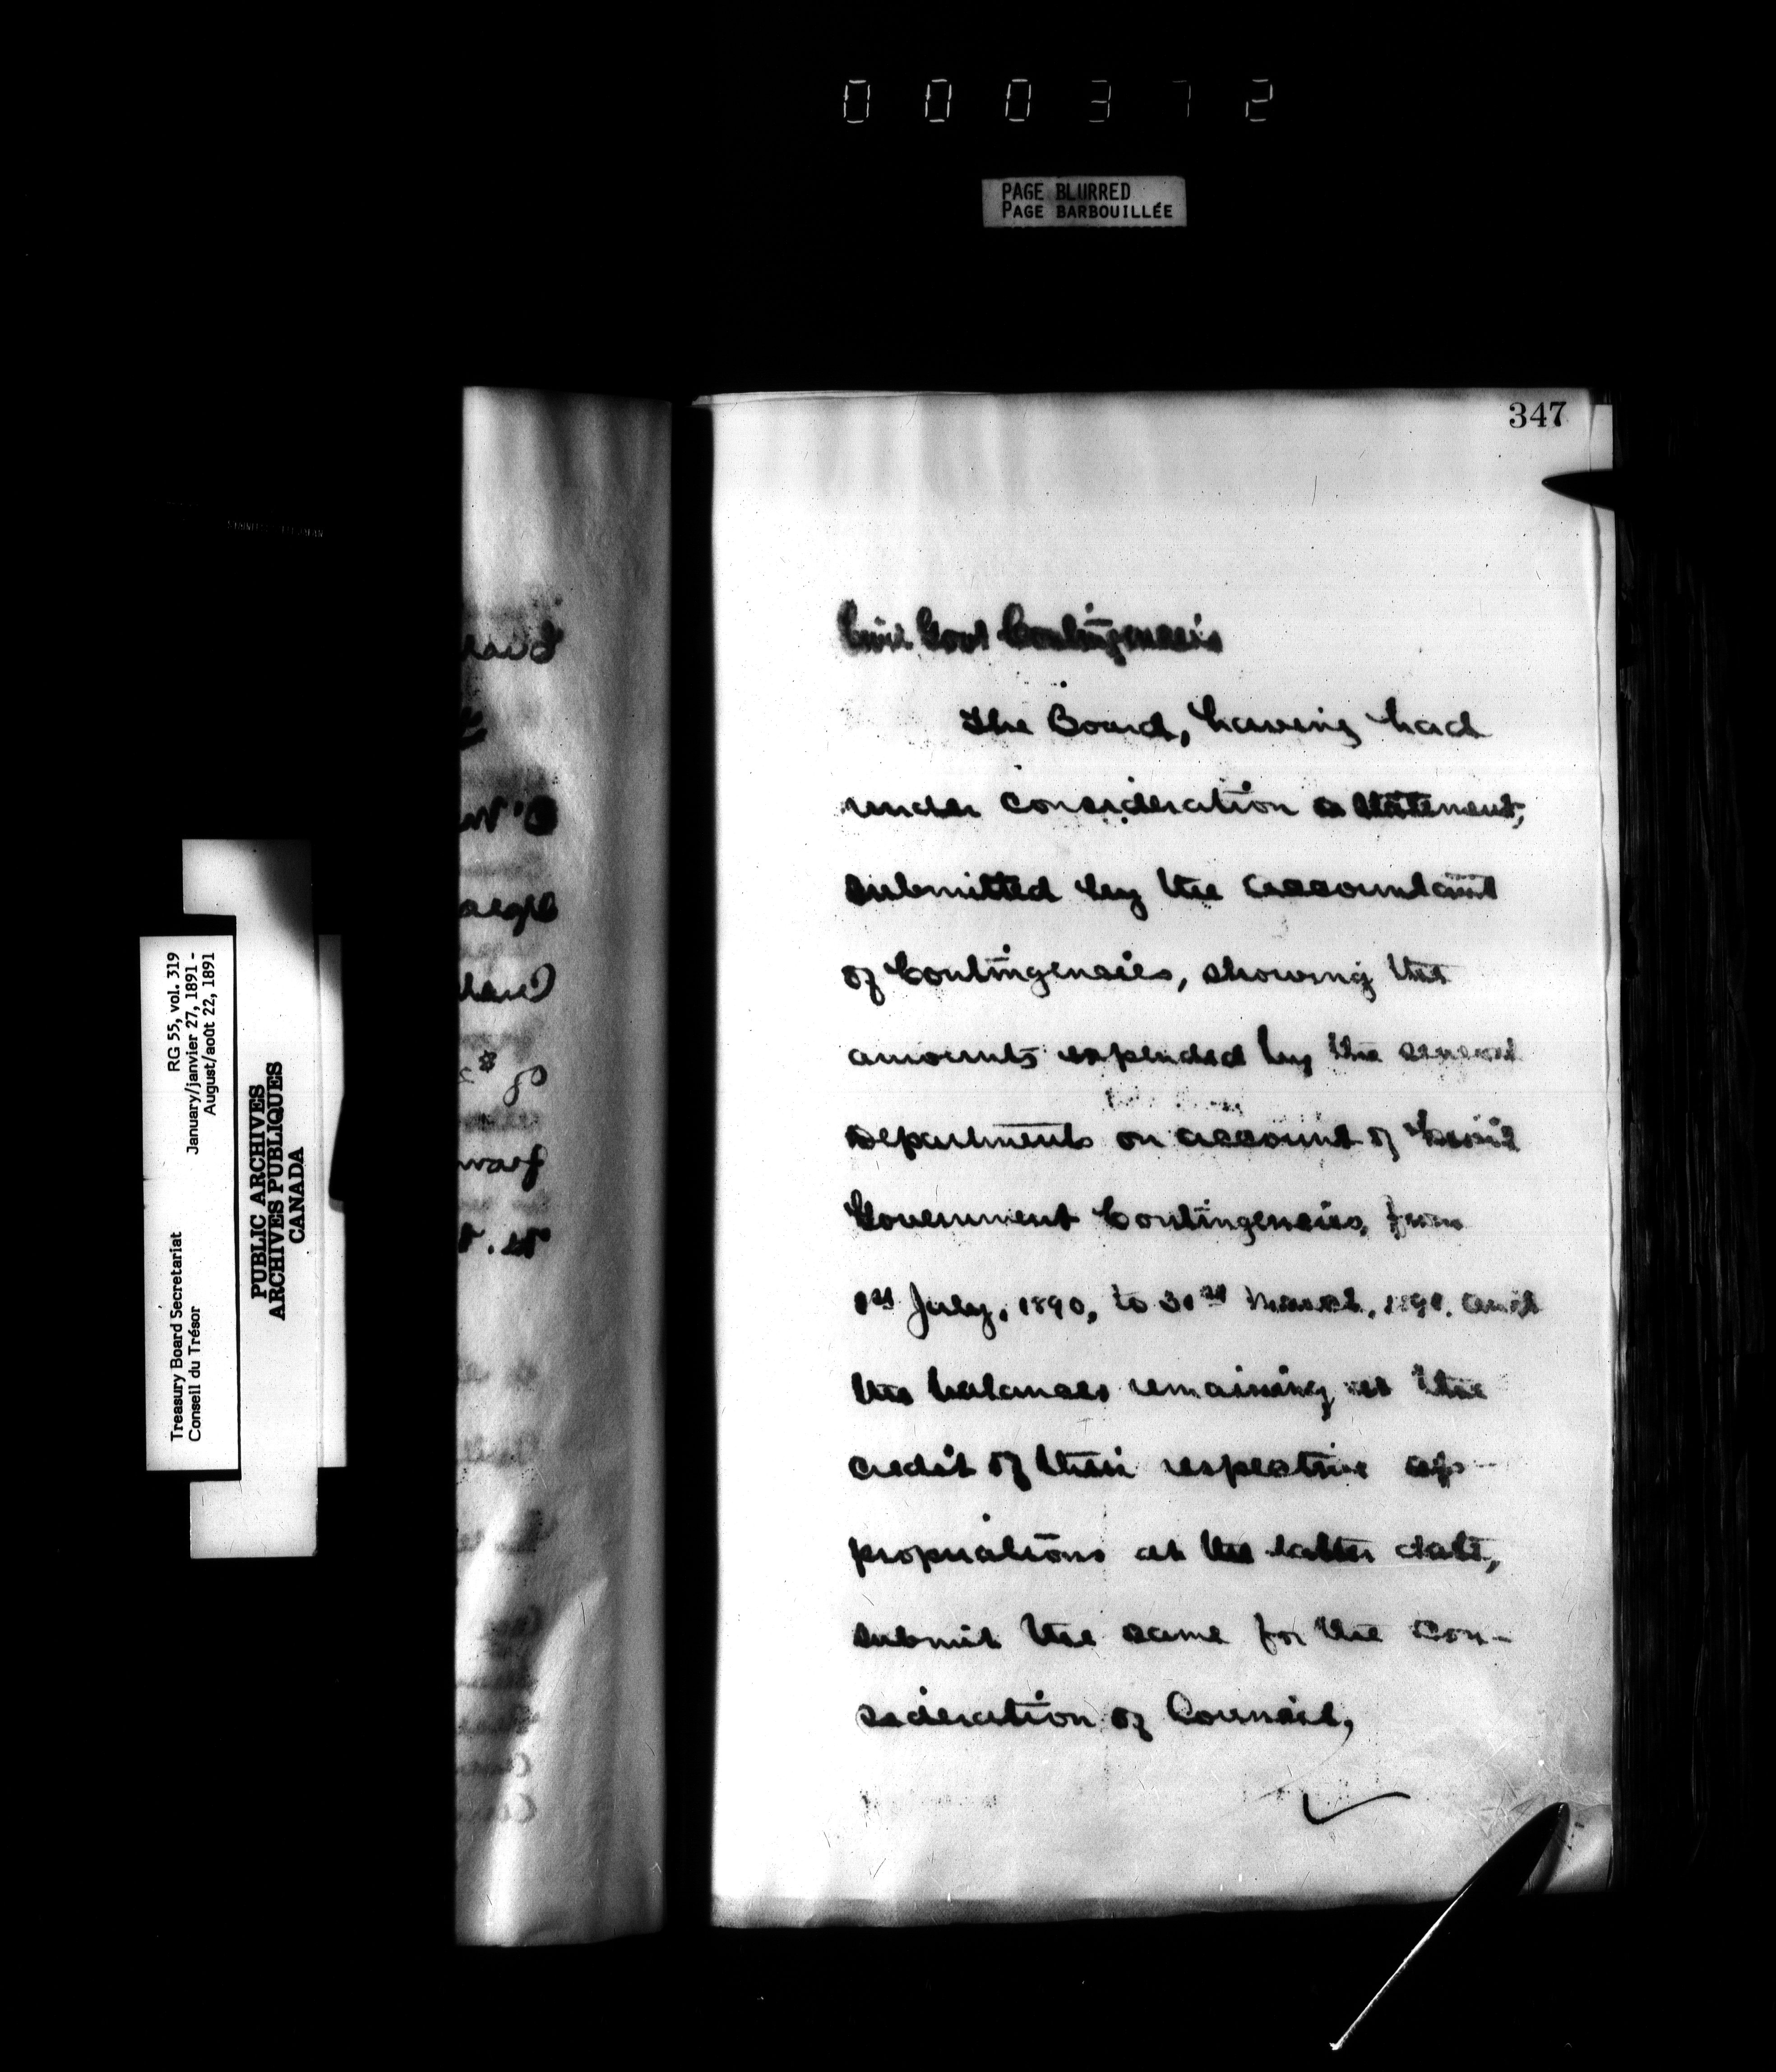 000372
PAGE BLURRED
PAGE BARBOUILLÉE
347
Civil Govt Contingencies
The Board, having had
under consideration a statement,
submitted by the accountant
of Contingencies, showing the
amounts expended by the several
Departments on account of Civil
Government Contingencies, from
1st July, 1890, to 31st March, 1891, and
the balances remaining at the
credit of their respective ap-
propriations at the latter date,
submit the same for the con-
sideration of Council,
RG 55, vol. 319
January/janvier 27, 1891 -
August/août 22, 1891
Treasury Board Secretariat
Conseil du Trésor
PUBLIC ARCHIVES
ARCHIVES PUBLIQUES
CANADA